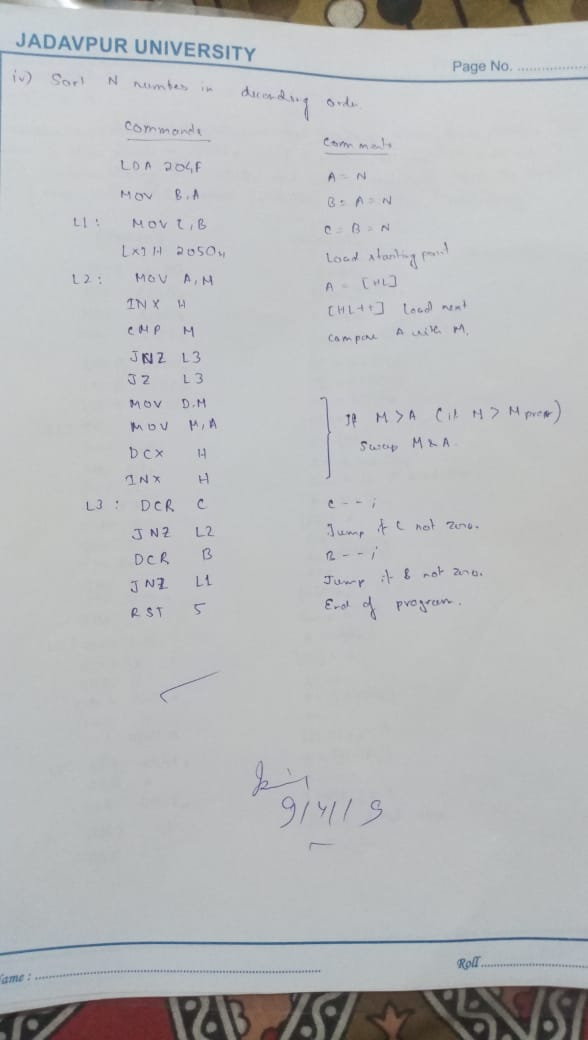 JADAVPUR UNIVERSITY
Page No. ................
iv) Sort N number in order.
Commands Comments
LDA 204F A = N
MOV B,A B = A = N
L1: MOV C,B C = B = N
LXI H 2050H Load starting point
L2: MOV A,M A = [HL]
INX H [HL++] load next
CMP M Compare A with M.
JNZ L3
JZ L3
MOV D,M
MOV M,A If M>A (if M > Mprev)
DCX H Swap M & A.
INX H
L3: DCR C C--;
JNZ L2 Jump if C not zero.
DCR B B--;
JNZ L1 Jump if B not zero.
RST 5 End of program.
9/4/19
ame : ................
Roll ................